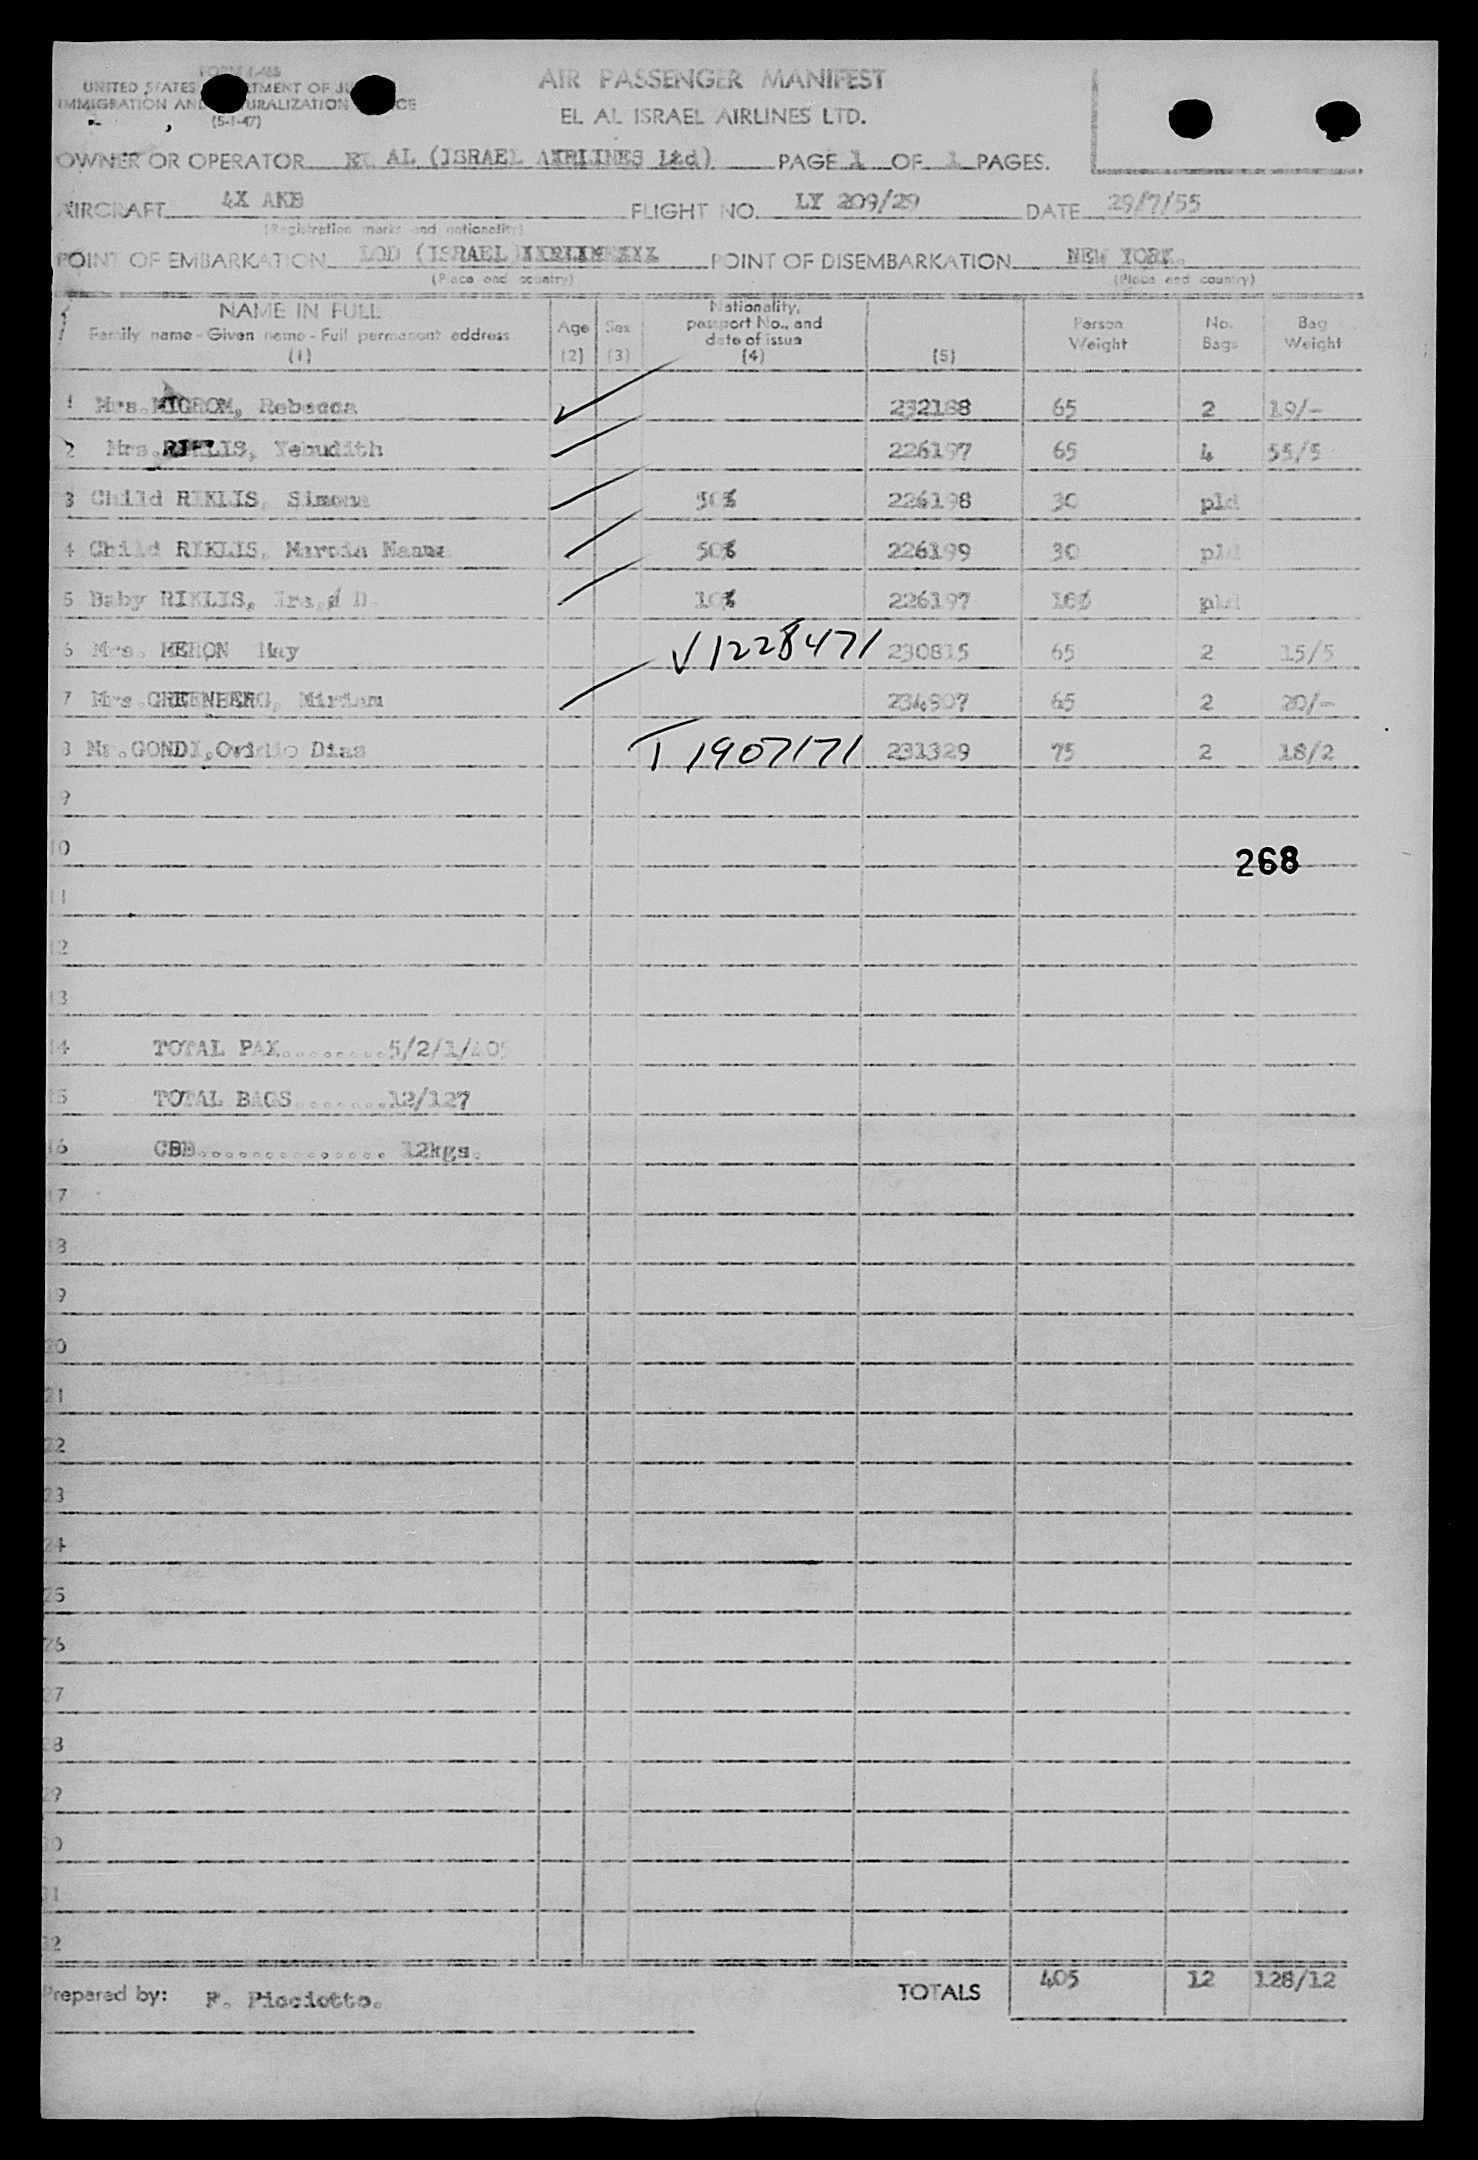 FORM I-466
UNITED STATES DEPARTMENT OF JUSTICE
IMMIGRATION AND NATURALIZATION SERVICE
(5-1-47)
AIR PASSENGER MANIFEST
EL AL ISRAEL AIRLINES LTD.
OWNER OR OPERATOR EL AL (ISRAEL AIRLINES Ltd) PAGE 1 OF 1 PAGES.
AIRCRAFT 4X AKB FLIGHT NO. LY 209/29 DATE 29/7/55
(Registration marks and nationality)
POINT OF EMBARKATION LOD (ISRAEL) POINT OF DISEMBARKATION NEW YORK.
(Place and country) (Place and country)
NAME IN FULL
Family name - Given name - Full permanent address
(1)
Age (2) Sex (3) Nationality, passport No., and date of issue (4) (5) Person Weight No. Bags Bag Weight
1 Mrs.MIGROM, Rebecca 232188 65 2 19/-
2 Mrs.RIKLIS, Yehudith 226197 65 4 55/5
3 Child RIKLIS, Simona 50% 226198 30 pld
4 Child RIKLIS, 50% 226199 30 pld
5 Baby RIKLIS, D. 10% 226197 pld
6 Mrs. MERON May V1228471 230815 65 2 15/5
7 Mrs.GREENBERG, Miriam 234507 65 2 20/-
8 Mr.GONDI,Ovidio Dias T1907171 231329 75 2 18/2
9
10 268
11
12
13
14 TOTAL PAX.........5/2/1/405
15 TOTAL BAGS.......12/127
16 CBB............... 12kgs.
17
18
19
20
21
22
23
24
25
26
27
28
29
30
31
32
Prepared by: F. Picciotto. TOTALS 405 12 128/12